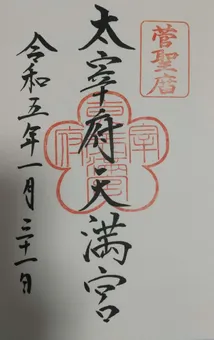 菅聖暦
太宰府天満宮
令和五年一月三十一日